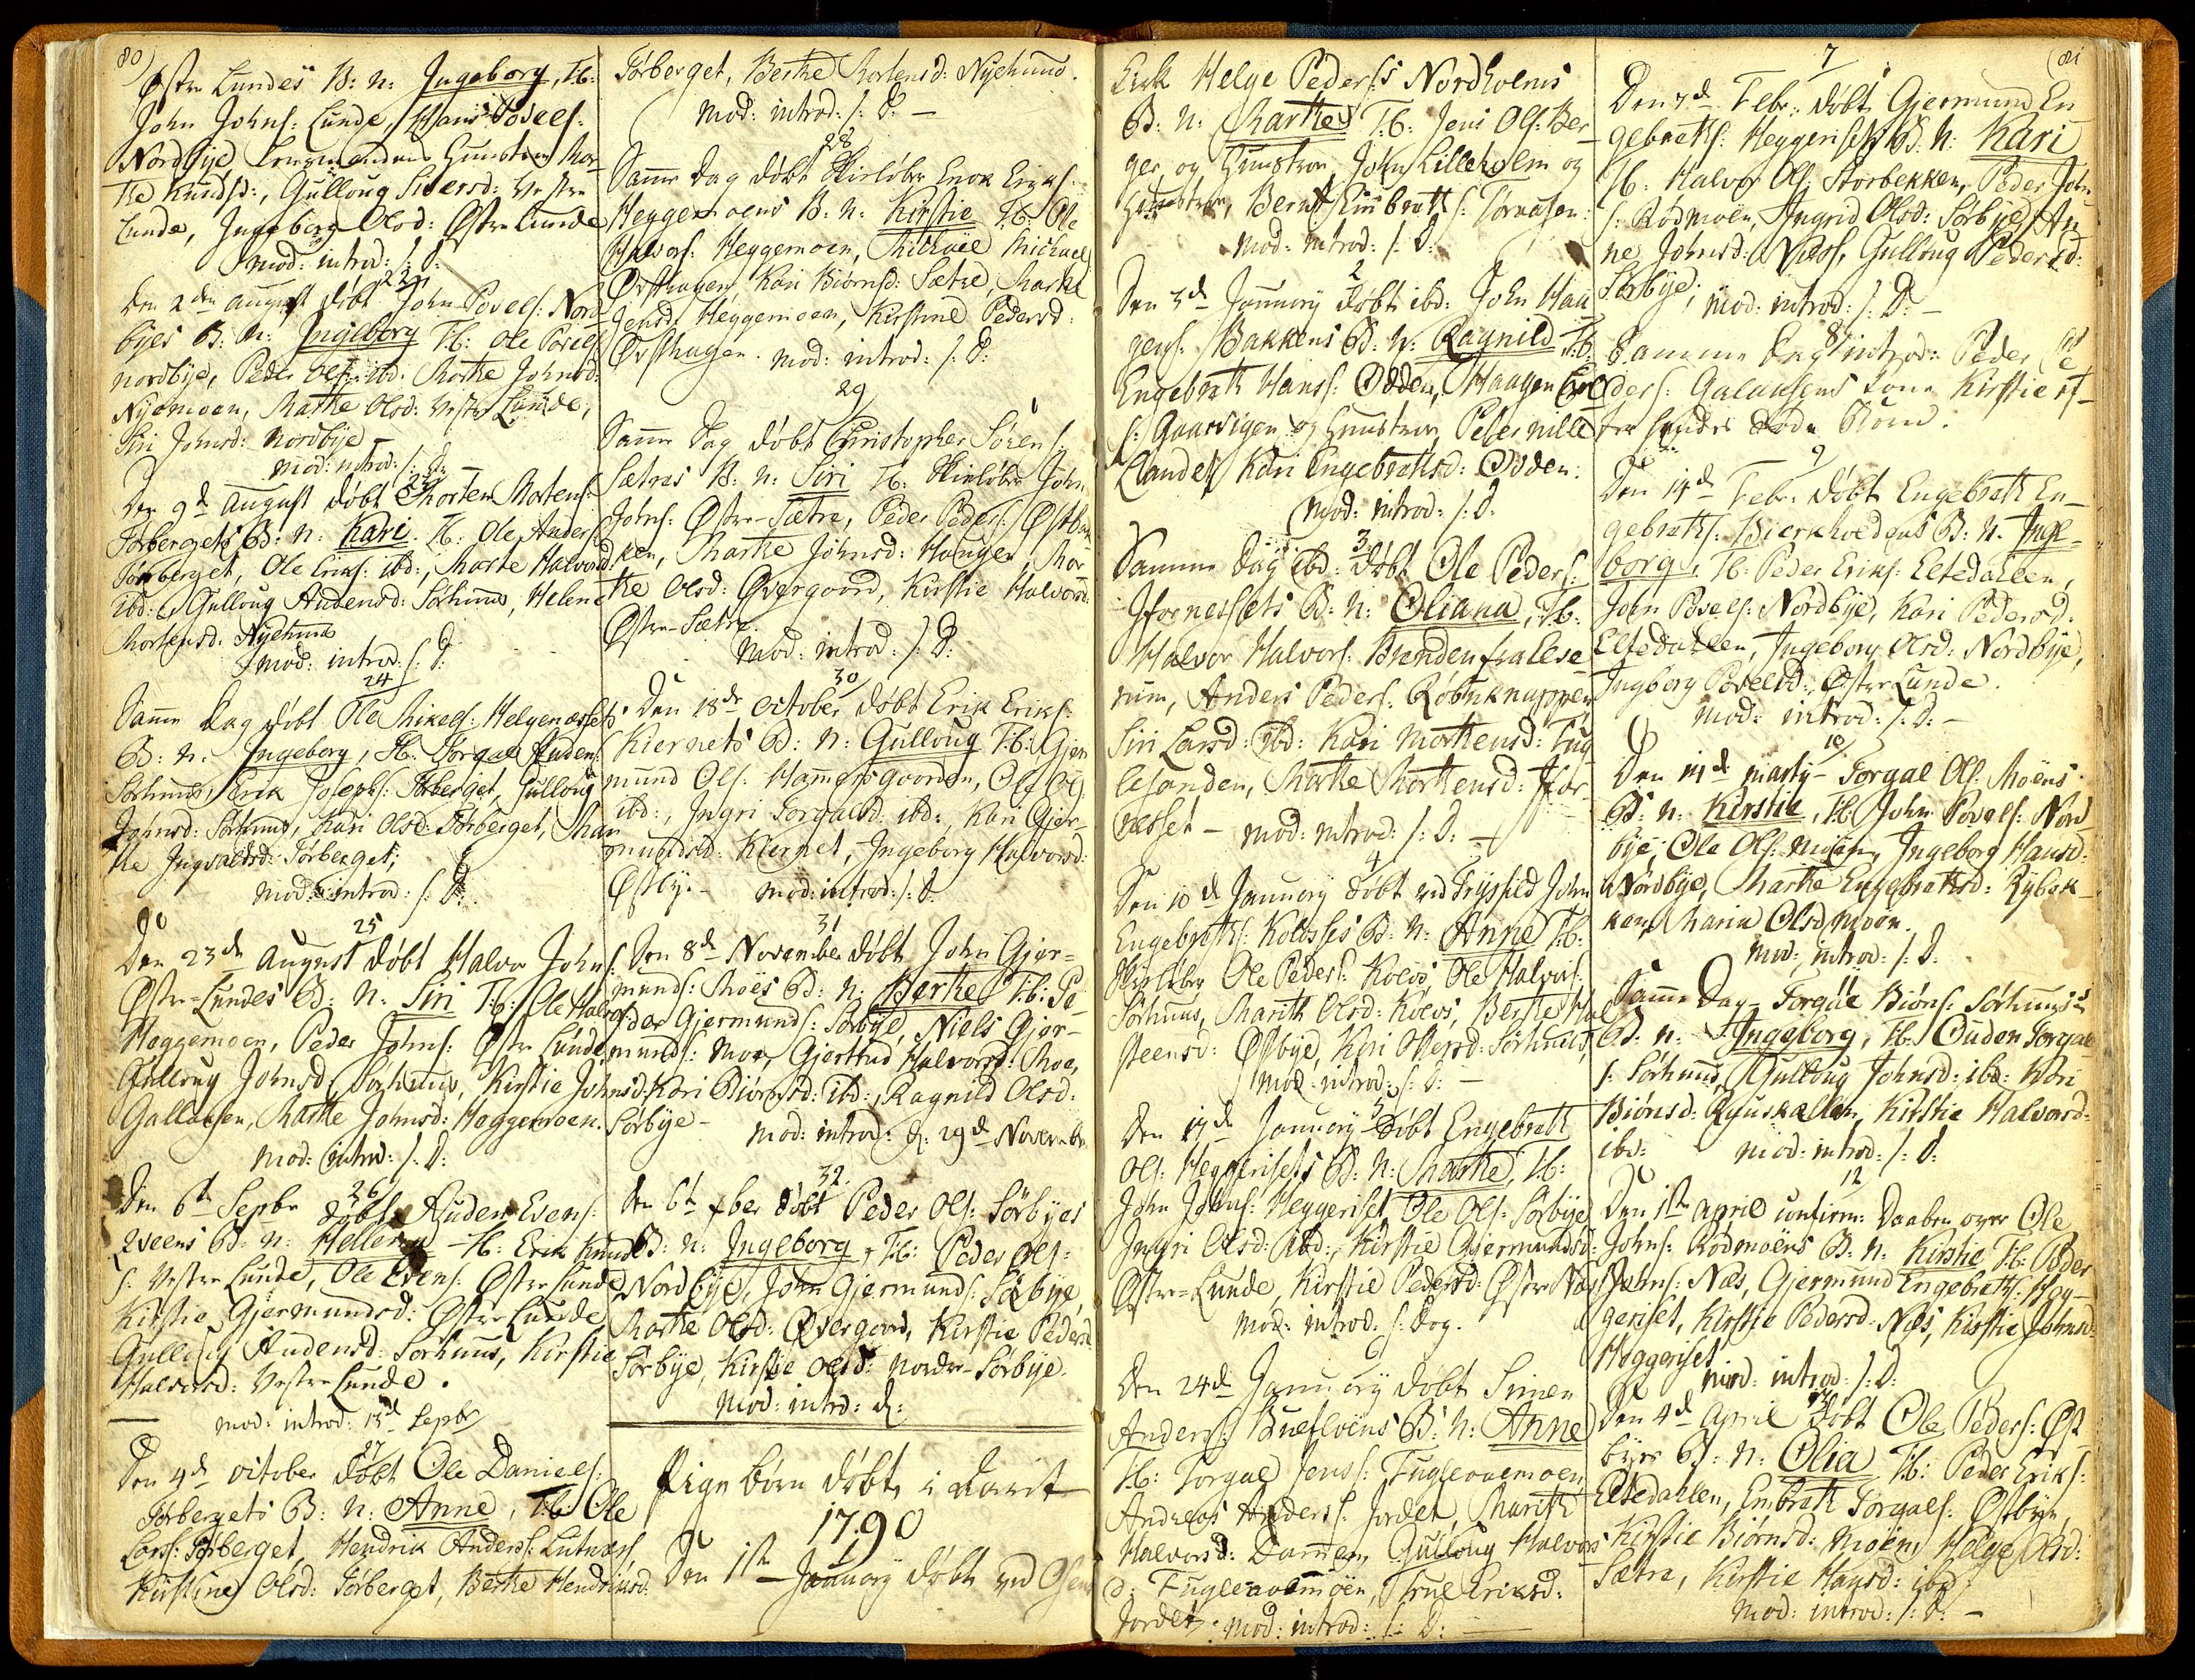 80
Østre Lundes B: n: Ingeborg, T.b:
John Johns: Lunde, Hans Povels:
Nordbye Lensmandens Hustrue Mar-
the Knudsd:, Gulloug Siversd: Vestre
Lunde, Ingeborg Olsd: Østre Lunde
Mod: introd: s: D:
22
Den 2den august døbt John Povels: Nord
byes B: n: Ingeborg T.b: Ole Povels
nordbye, Peder Ols: ibd: Marthe Johnsd:
Nyemoen, Marthe Olsd: Vestre Lunde,
Siri Johnsd: Nordbye
Mod: introd: s: D:
23
Den 9d August døbt Morten Mortens:
Tørbergets B: n: Kari. T.b: Ole Anders:
Tørberget, Ole Eriks: ibd:, Marte Halvord:
ibd: Gulloug Audensd: Sørhuus, Helene
Mortensd: Nyehuus
Mod: introd: s: D:
24
Samme Dag døbt Ole Mikels: Helgenæssets
B: n: Ingeborg, T.b: Torgal Audens:
Sørhuus, Erik Josephs: Tørberget, Gulloug
Johnsd: Sørhuus, Kari Olsd: Tørberget, Mar
the Ingvaldsd: Tørberget;
Mod: introd: s: D:
25
Den 23d August døbt Halvor Johns:
Østre-Lundes B: n: Siri T.b: Ole Halvors
Heggemoen, Peder Johns: Østre Lunde
Gulloug Johnsd: Sørhuus, Kirstie Johnsd:
Gallaasen, Marthe Johnsd: Heggemoen.
Mod: introd: s: D:
26
Den 6t Sepbr døbt Auden Evens:
Qveens B: n: Hellena - T.b: Erik Knud
s: Vestre Lunde, Ole Evens: Østre Lunde
Kirstie Gjermundsd: Østre Lunde
Gulloug Audensd: Sørhuus, Kirstie
Halvorsd: Vestre Lunde.
Mod: introd: 13d Sepbr
27
Den 4d October døbt Ole Daniels:
Tørbergets B: n: Anne, T.b: Ole
Larss: Tørberget, Hendrik Anders: Lutnæs,
Kirstine Olsd: Tørberget, Berthe Hendriksd.
Tørberget, Berthe Mortensd: Nyehuus.
Mod: introd: s: D: -
28
Samme Dag døbt Skieløber Enok Eriks:
Heggemoens B: n: Kirstie T.b: Ole
Halvors: Heggemoen, Michael Michael
Ørsthagen Kari Biørnsd: Sætre, Marthe
Jensd: Heggemoen, Kirstine Pedersd:
Ørsthagen. Mod: introd: s: D:
29
Samme Dag døbt Christopher Sørens:
Sætres B: n: Siri T.b: Skieløber John
Johns: Østre-Sætre, Peder Peders: Østbak
ken, Marthe Johnsd: Haugen, Mar
the Olsd: Øvergaard, Kirstie Halvorsd:
Østre-Sætre.
Mod: introd: s: D:
30
Den 18de October døbt Erik Eriks:
Kiernets B: n: Gulloug T.b: Gjer
mund Ols: Hammersgaarden, Ole Ols:
ibd:, Ingri Torgalsd: ibd:, Kari Gjer-
mundsd: Kiernet, Ingeborg Halvorsd:
Østby. - Mod: introd: s: D.
31
Den 8d November døbt John Gjer-
munds: Moes B: n: Berthe T.b: Pe-
der Gjermunds: Sørbye, Niels Gjer-
munds: Moe, Gjertrud Halvorsd: Moe,
Kari Biørnsd: ibd:, Ragnild Olsd:
Sørbye - Mod: introd: d: 29d Novembr.
32
Den 6t xber døbt Peder Ols: Sørbyes
B: n: Ingeborg, T.b: Peder Ols:
Nordbye, John Gjermunds: Sørbye,
Marthe Olsd: Øvergaard, Kirstie Pedersd
Sørbye, Kirstie Olsd: Nordre-Sørbye.
Mod: introd: d:
Pige børn døbte i Aaret
1790
1
Den 1ste January døbt ved
Erik Helge Peders:s Nordholms
B: n: Marthe T.b: Jens Ols: Ber-
ger og Hustrue, John Lilleholm og
Hustrue, Bernt Embrets: Tornaasen.
Mod: introd: s: D:
2
Den 3d January døbt ibd: John Haa
gens: Bakkens B: n: Ragnild T.b:
Engebreth Hanss: Odden, Haagen Carl
s: Gaarvigen og Hustrue, Pelernille
Elandet, Kari Engebrethsd: Odden.
Mod: introd: s: D.
3
Samme Dag ibd: døbt Ole Peders:
B: n: Oliana, T.b:
Halvor Halvors: Brenden fra Elve
rum, Anders Peders: Robuknappen
Siri Larsd: ibd: Kari Mortensd: Fug
lesanden, Marthe Mortensd:
næsset - Mod: introd: s: D: -
4
Den 10d January døbt ved Trysfild John
Engebreths: Kolosses B: n: Anne T.b:
Skieløber Ole Peders: Kolos, Ole Halvors:
Sørhuus, Marith Olsd: Kolos, Berthe Hal
steensd: Østbye, Kari Ottersd: Sørhuus,
Mod: introd: s: D: -
5
Den 17de January døbt Engebreth
Ols: Heggerisets B: n: Marthe, T.b:
John Johns: Heggeriset, Ole Ols: Sørbye,
Ingri Olsd: ibd:, Kirstie Gjermundsd:
Østre-Lunde, Kirstie Pedersd: Østre Næs.
Mod: introd: s: Dag.
6
Den 24d January døbt Simen
Anders: B: n: Anne
T.b: Torgal Jens: Fugleaaemoen,
Andreas Anders: Jordet, Marith
Halvorsd: Dammen, Gulloug Halvors
d: Fugleaaemoen, Eriksd:
Jordet. Mod: introd: s: D: -
(81
7
Den 7d Febr: døbt Gjermund En
gebreths: Heggerisets B: n: Kari
T.b: Halvor Ols: Storbekken, Peder John
s: Rødmoen, Ingrid Olsd: Sørbye, An
ne Johnsd: Næss, Gulloug Pedersd:
Sørbye; Mod: introd: s: D: -
8
Samme Dag introd: Peder Pe
ders: Galaasens Kone Kirstie ef-
ter hendes døde Barn.
9
Den 14d Febr: døbt Engebreth En-
gebreths: Bierkhoedens B: n: Inge-
borg, T.b: Peder Eriks: Eltedallen,
John Povels: Nordbye, Kari Pedersd:
Eltedallen, Ingeborg Olsd: Nordbye,
Ingborg Povelsd:, Østre Lunde.
Mod: introd: s: D: -
10
Den 14d Marty - Torgal Ols: Moens
B: n: Kirstie, T.b: John Povels: Nord
bye, Ole Ols: Moen, Ingeborg Hansd:
Nordbye, Marthe Engebrethsd: Rybak-
ken, Maria Olsd Moen.
Mod: introd: s: D.
11
Samme Dag - Torgal Biørns: Sørhuus's
B: n: Ingeborg, T.b: Ouden Torgal
s: Sørhuus, Gulloug Johnsd: ibd: Kari
Biørnsd: Ryuskallen, Kirstie Halvorsd:
ibd: Mod: introd: s: D:
12
Den 1ste April confirm: Daaben over Ole
Johns: Rødmoens B: n: Kirstie, T.b: Peder
Johns: Næs, Gjermund Engebreths: Heg-
geriset, Kirstie Pedersd: Næs, Kirstie Johnsd:
Heggeriset
Mod: introd: s: D.
13
Den 4d April døbt Ole Peders: Øst
byes B: n: Olia T.b: Peder Eriks:
Eltedallen, Embreth Torgals: Østbye,
Kirstie Biørnsd: Moen, Helge Olsd:
Sætre, Kirstie Hansd: ibd:
Mod: introd: s: D: -